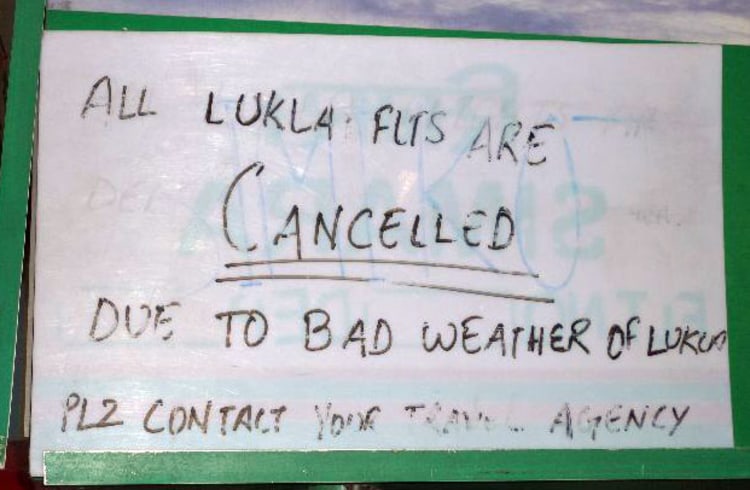 ALL LUKLA FLTS ARE
CANCELLED
DUE TO BAD WEATHER OF LUKLA
PLZ CONTACT YOUR TRAVEL AGENCY